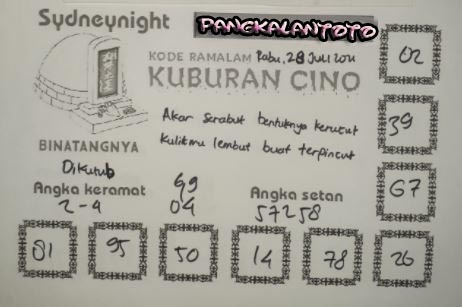 Sydneynight
PANGKALANTOTO
KODE RAMALAM Rabu, 28 Juli 2021
KUBURAN CINO
Akar Serabut bentuknya kerucut
Kulitmu lembut buat terpincut
BINATANGNYA
Dikutub
Angka keramat
2-9
99
04
Angka setan
57258
02
39
67
81 95 50 14 78 26